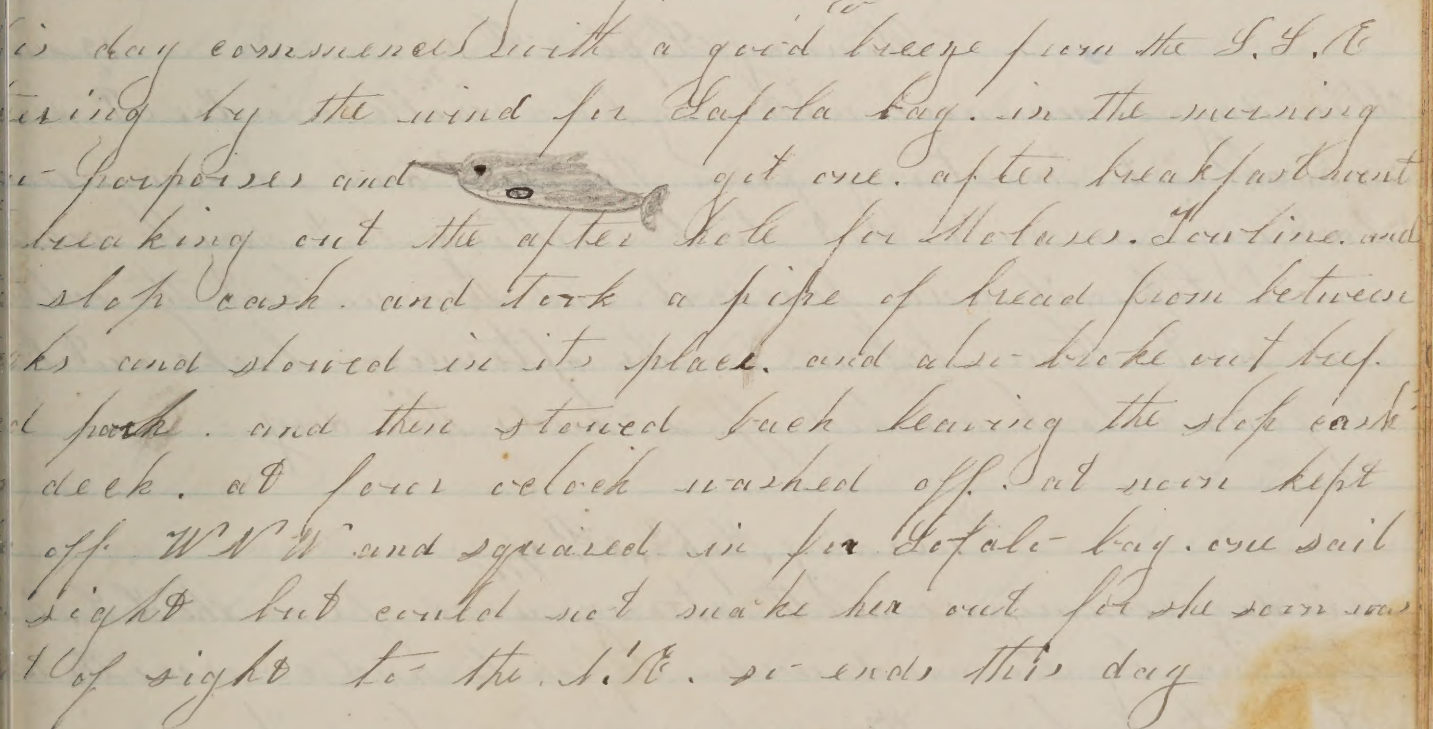 is day commences with a good breeze from the S.S.E
tering by the wind for Safola bay. in the morning
porpoises and got one. after breakfast went
breaking out the after hole for Molases. Towline. and
slop cask. and took a pipe of bread from between
ks and stowed in its place. and also broke out beef.
d pork. and then stowed back leaving the slop cask
deck. at four oclock washed off. at noon kept
off W N W and squared in for Lofalo bay. one sail
sight but could not make her out for she soon was
t of sight to the N.E. so ends this day